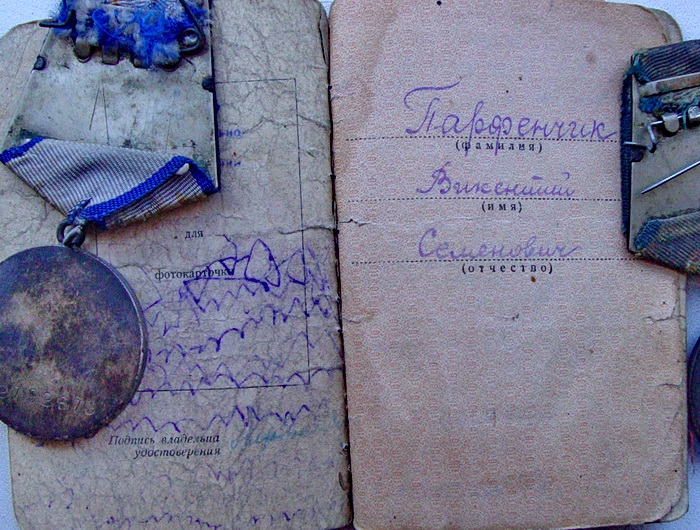 для
фотокарточки
Подпись владельца
удостоверения
Парфенчик
(фамилия)
Викентий
(имя)
Семенович
(отчество)